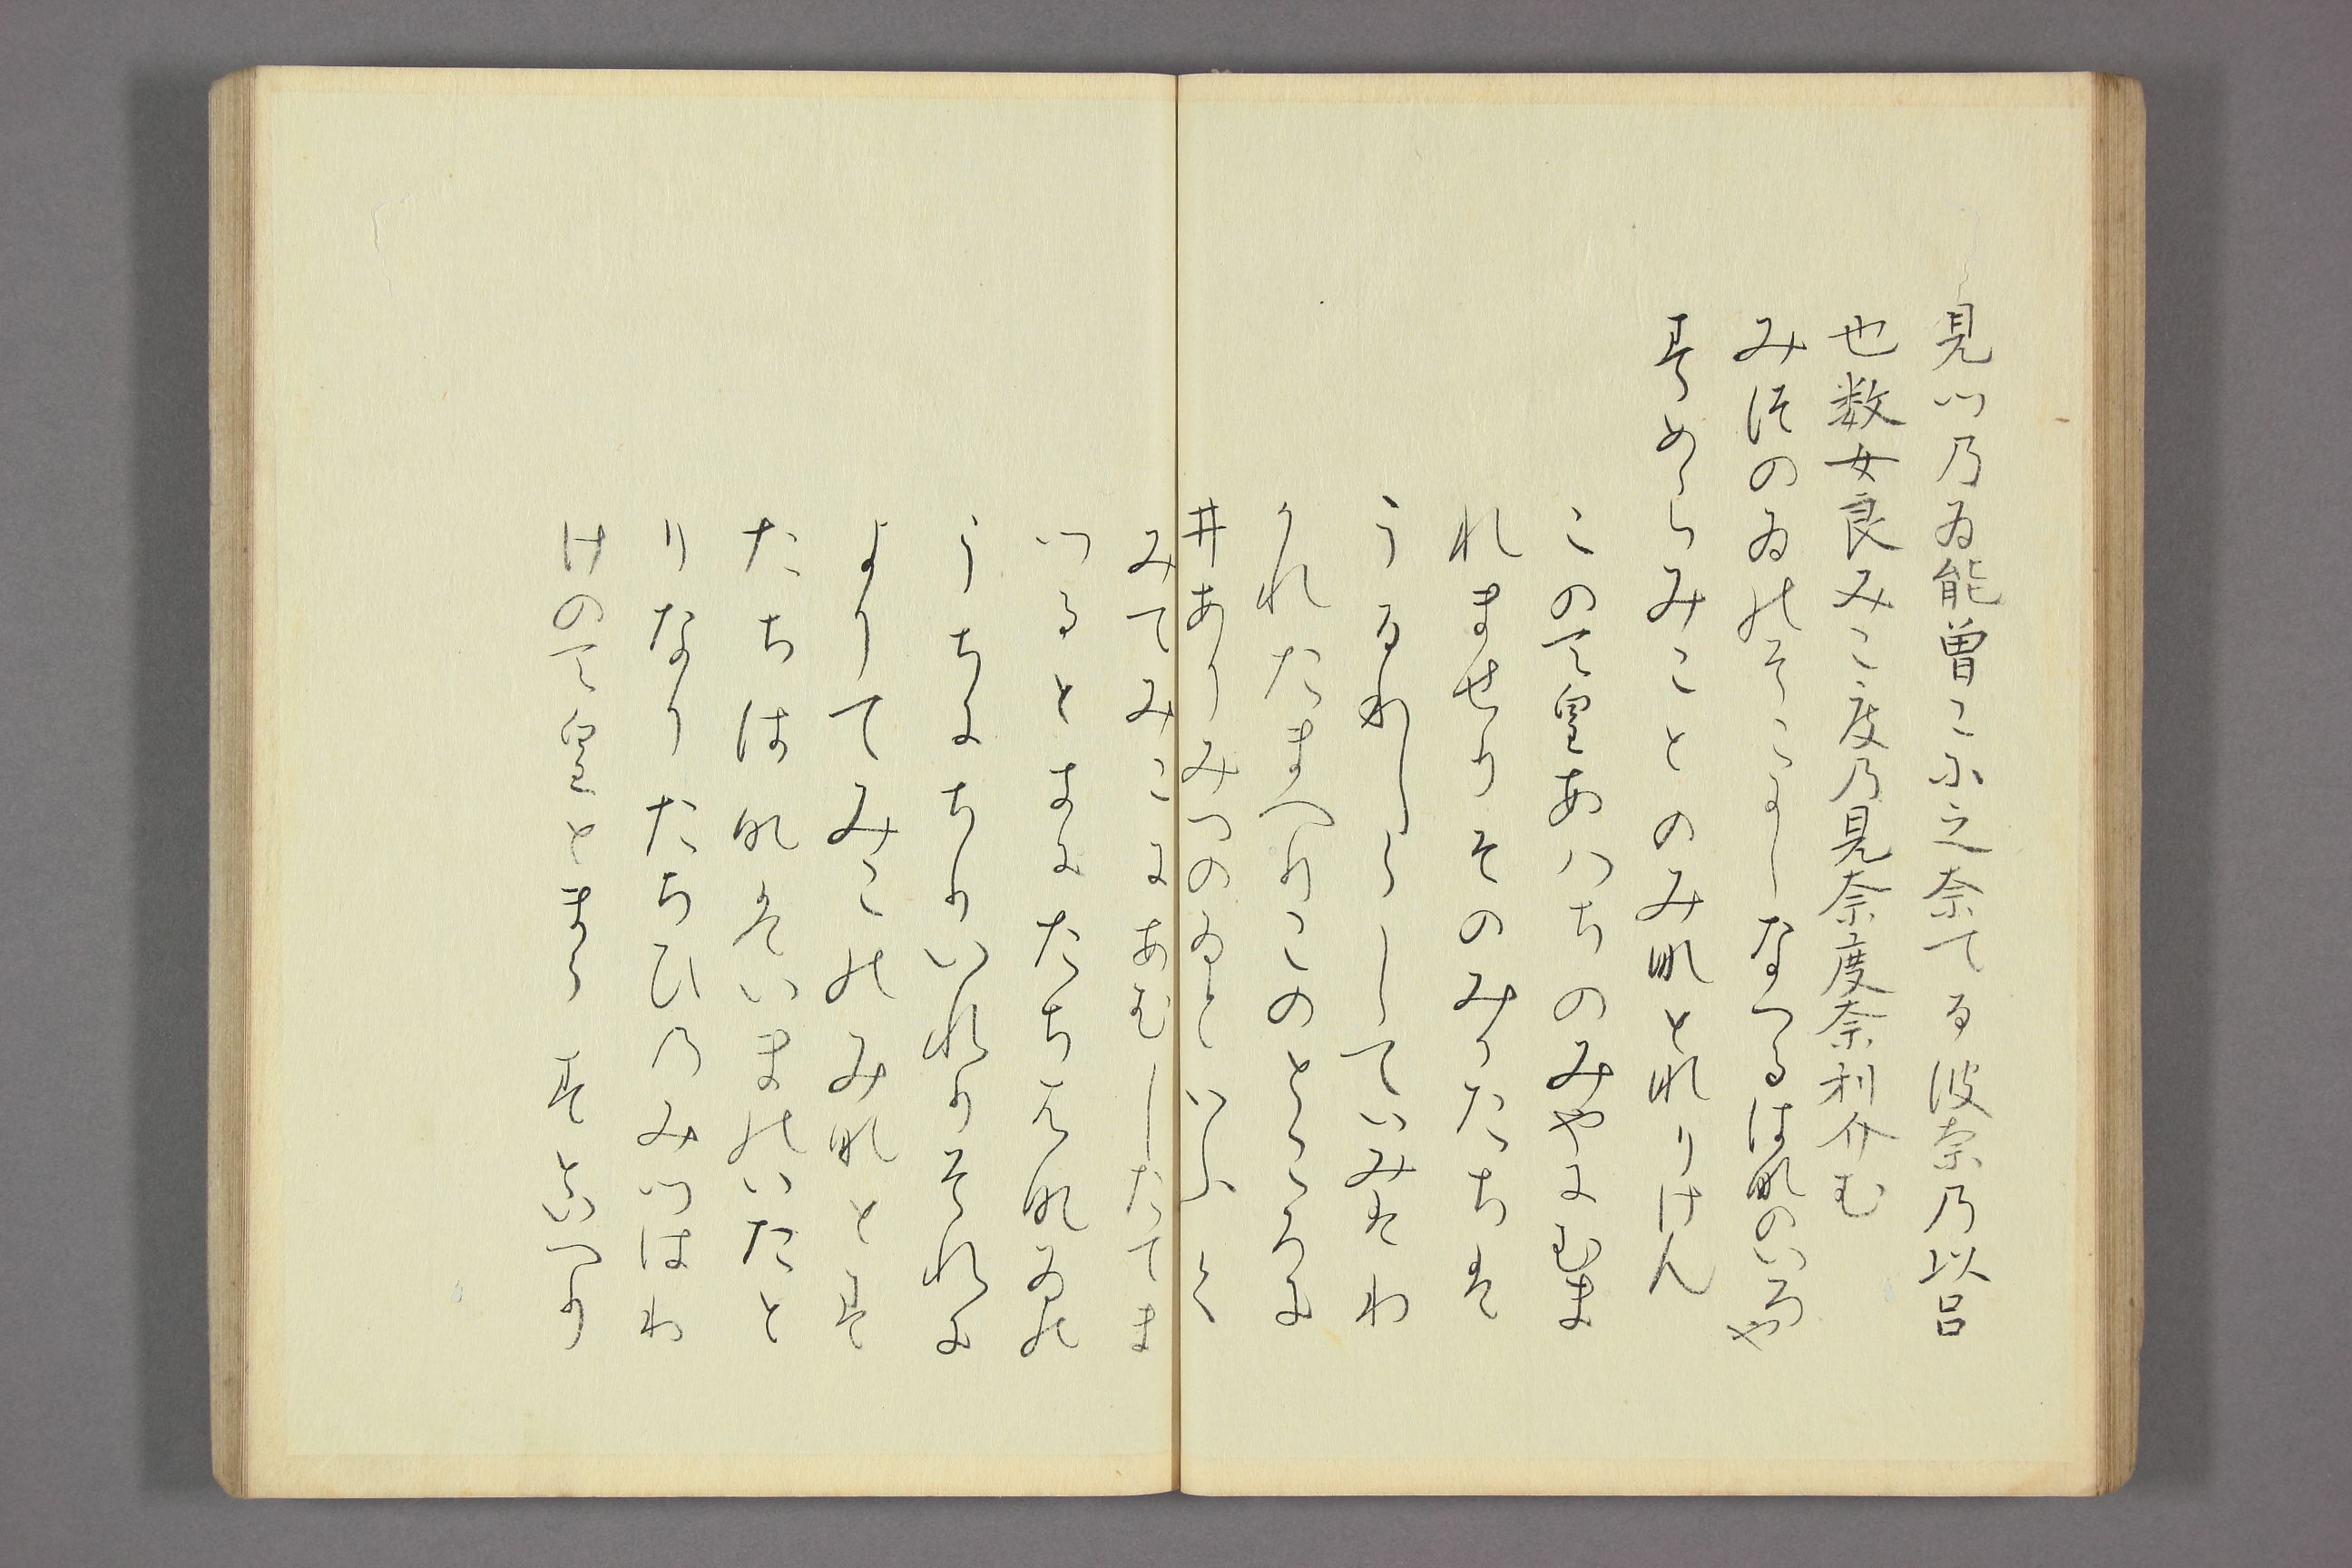 見川乃ゐ能曽こ尓之奈てる波奈乃以呂
也数女良みこ度乃見奈度奈利介む
みつのゐのそこよしなてるは那のいろや
すめらみことのみ那となりけん
この天皇あはちのみやにむま
れませりそのみかたちす
うるわしうしていみそわ
かれたまへりこのところに
井ありみつのゐといふく
みてみこにあむしたてま
つるときにたちはなゐの
うちにちりいれりそれに
よりてみこのみ那とす
たちは那はいまのいたと
りなりたちひのみつはわ
けの天皇とまうすといへり